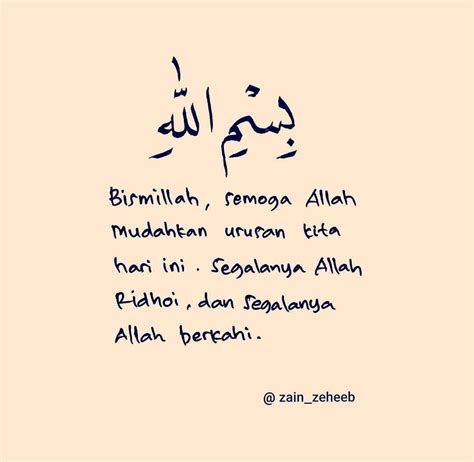 بِسْمِ اللّٰهِ
Bismillah, semoga Allah
Mudahkan urusan kita
hari ini. Segalanya Allah
Ridhoi, dan segalanya
Allah berkahi.
@ zain_zeheeb